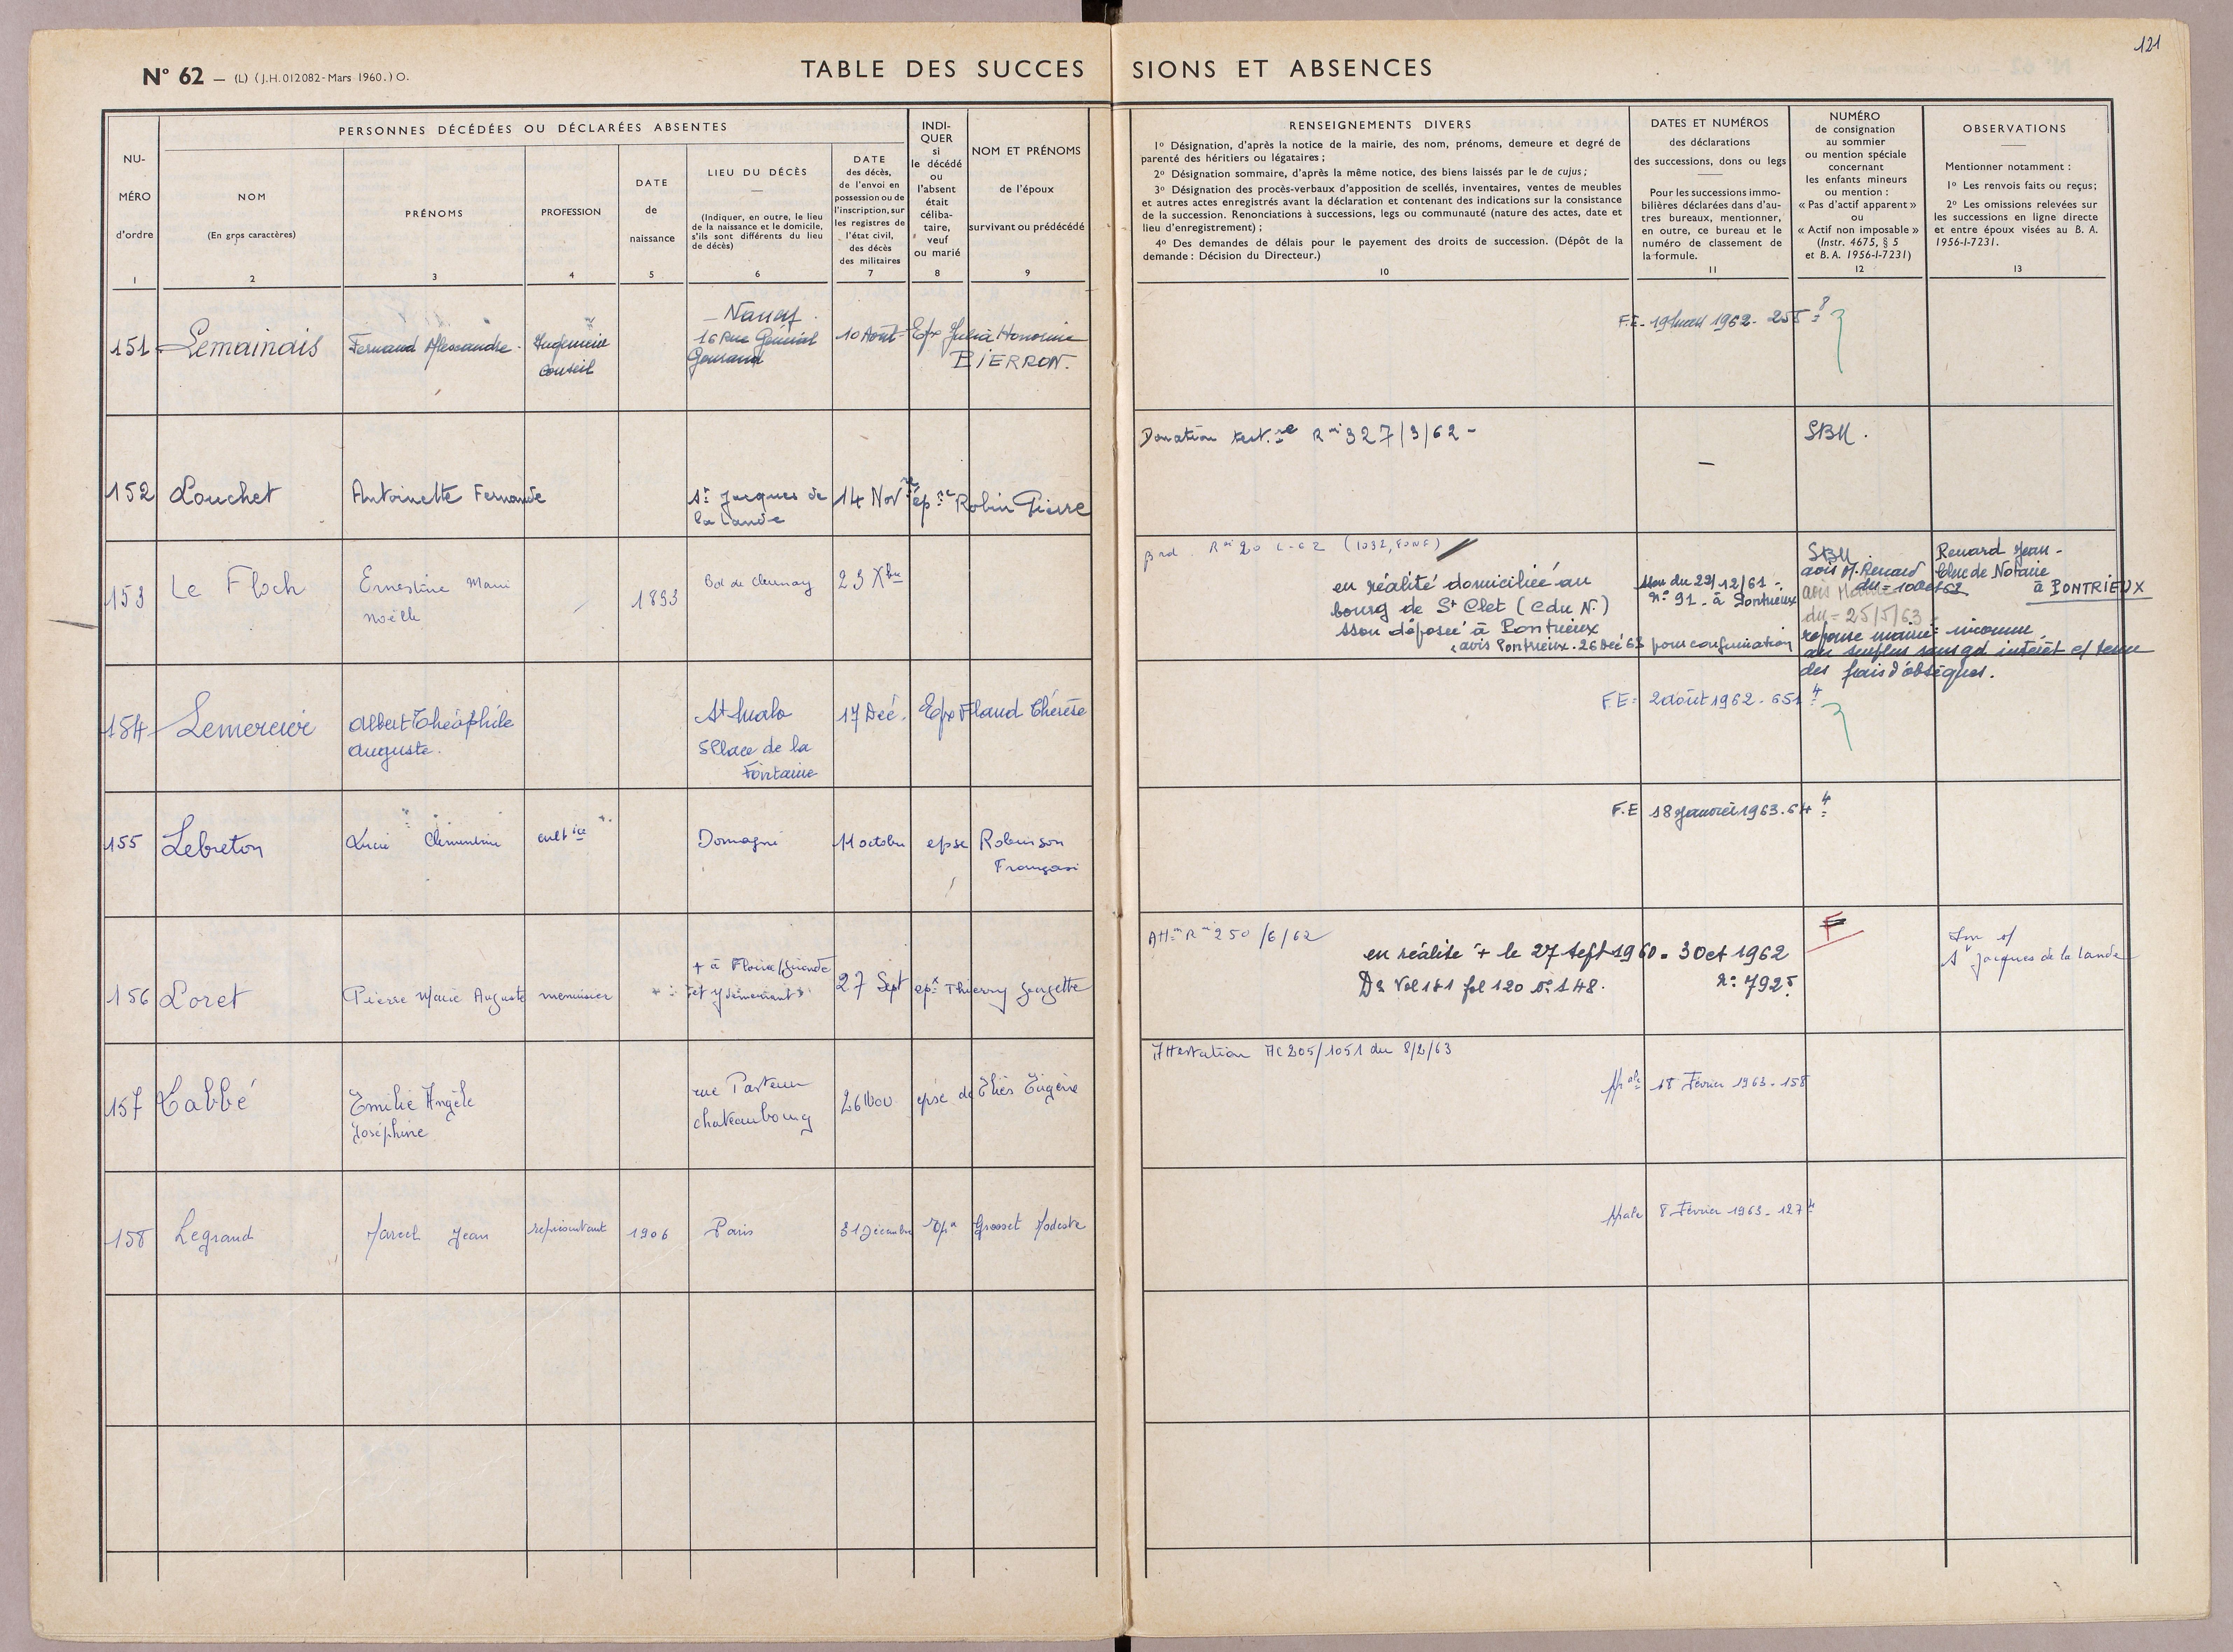 121
N° 62 — (L) (J.H. 012082-Mars 1960.) O.
TABLE DES SUCCESSIONS ET ABSENCES
NU-
MÉRO
d'ordre
1
PERSONNES DÉCÉDÉES OU DÉCLARÉES ABSENTES
NOM
(En gros caractères)
2
PRÉNOMS
3
PROFESSION
4
DATE
de
naissance
5
LIEU DU DÉCÈS
(Indiquer, en outre, le lieu
de la naissance et le domicile,
s'ils sont différents du lieu
de décès)
6
DATE
des décès,
de l'envoi en
possession ou de
l'inscription, sur
les registres de
l'état civil,
des décès
des militaires
7
INDI-
QUER
si
le décédé
ou
l'absent
était
céliba-
taire,
veuf
ou marié
8
NOM ET PRÉNOMS
de l'époux
survivant ou prédécédé
9
RENSEIGNEMENTS DIVERS
1° Désignation, d'après la notice de la mairie, des nom, prénoms, demeure et degré de
parenté des héritiers ou légataires ;
2° Désignation sommaire, d'après la même notice, des biens laissés par le de cujus ;
3° Désignation des procès-verbaux d'apposition de scellés, inventaires, ventes de meubles
et autres actes enregistrés avant la déclaration et contenant des indications sur la consistance
de la succession. Renonciations à successions, legs ou communauté (nature des actes, date et
lieu d'enregistrement) ;
4° Des demandes de délais pour le payement des droits de succession. (Dépôt de la
demande : Décision du Directeur.)
10
DATES ET NUMÉROS
des déclarations
des successions, dons ou legs
Pour les successions immo-
bilières déclarées dans d'au-
tres bureaux, mentionner,
en outre, ce bureau et le
numéro de classement de
la formule.
11
NUMÉRO
de consignation
au sommier
ou mention spéciale
concernant
les enfants mineurs
ou mention :
« Pas d'actif apparent »
ou
« Actif non imposable »
(Instr. 4675, § 5
et B. A. 1956-I-7231)
12
OBSERVATIONS
Mentionner notamment :
1° Les renvois faits ou reçus ;
2° Les omissions relevées sur
les successions en ligne directe
et entre époux visées au B. A.
1956-I-7231.
13
151 Lemainais Fernand Alexandre Ingénieur
conseil
Nancy
16 Rue Général
Gouraud
10 Août Epx Julia Honorine
BIERRON.
F.E. 19 1962. 255
152 Louchet Antoinette Fernande St Jacques de
la Lande
14 Nov épse Robin Pierre
Donation 327/3/62 -
—
SBM.
153 Le Floch Ernestine Marie
Noëlle
1893 Bd de Cleunay 23 Xbre
en réalité domiciliée au
bourg de St Clet (C du N.)
sson déposée à Pontrieux
avis Pontrieux. 26 Déc 63 pour confirmation
sson du 29/12/61
n° 91 à Pontrieux
SBM
avis M. Renard
du 25/5/63
réponse mairie : inconnue
au surplus sans gd intérêt
des frais d'obsèques.
Renard Jean -
Clerc de Notaire
à PONTRIEUX
154 Lemercier Albert Théophile
Auguste.
St Malo
5 Place de la
Fontaine
17 Déc. Epx Flaud Thérèse
F.E. 2 août 1962. 651 4
155 Lebreton Lucie Clémentine cultice Domagné 11 octobre epse Robinson
François
F.E 18 Janvier 1963. 64 4
156 Loret Pierre Marie Auguste menuisier
et y demeurant
27 Sept epx Thierry Georgette
250/6/62
en réalité + le 27 sept 1960. 3 Oct 1962
Ds Vol 181 fol 120 n° 148. n° 792
F
St Jacques de la Lande
157 Labbé Emilie Angèle
Joséphine
rue Pasteur
chateaubourg
26 Nov epse de Eliès Eugène
Attestation AC 205/1051 du 8/2/63
18 Février 1963. 158
158 Legrand Marcel Jean représentant 1906 Paris 31 Décembre epx Grosset Modeste
8 Février 1963. 127